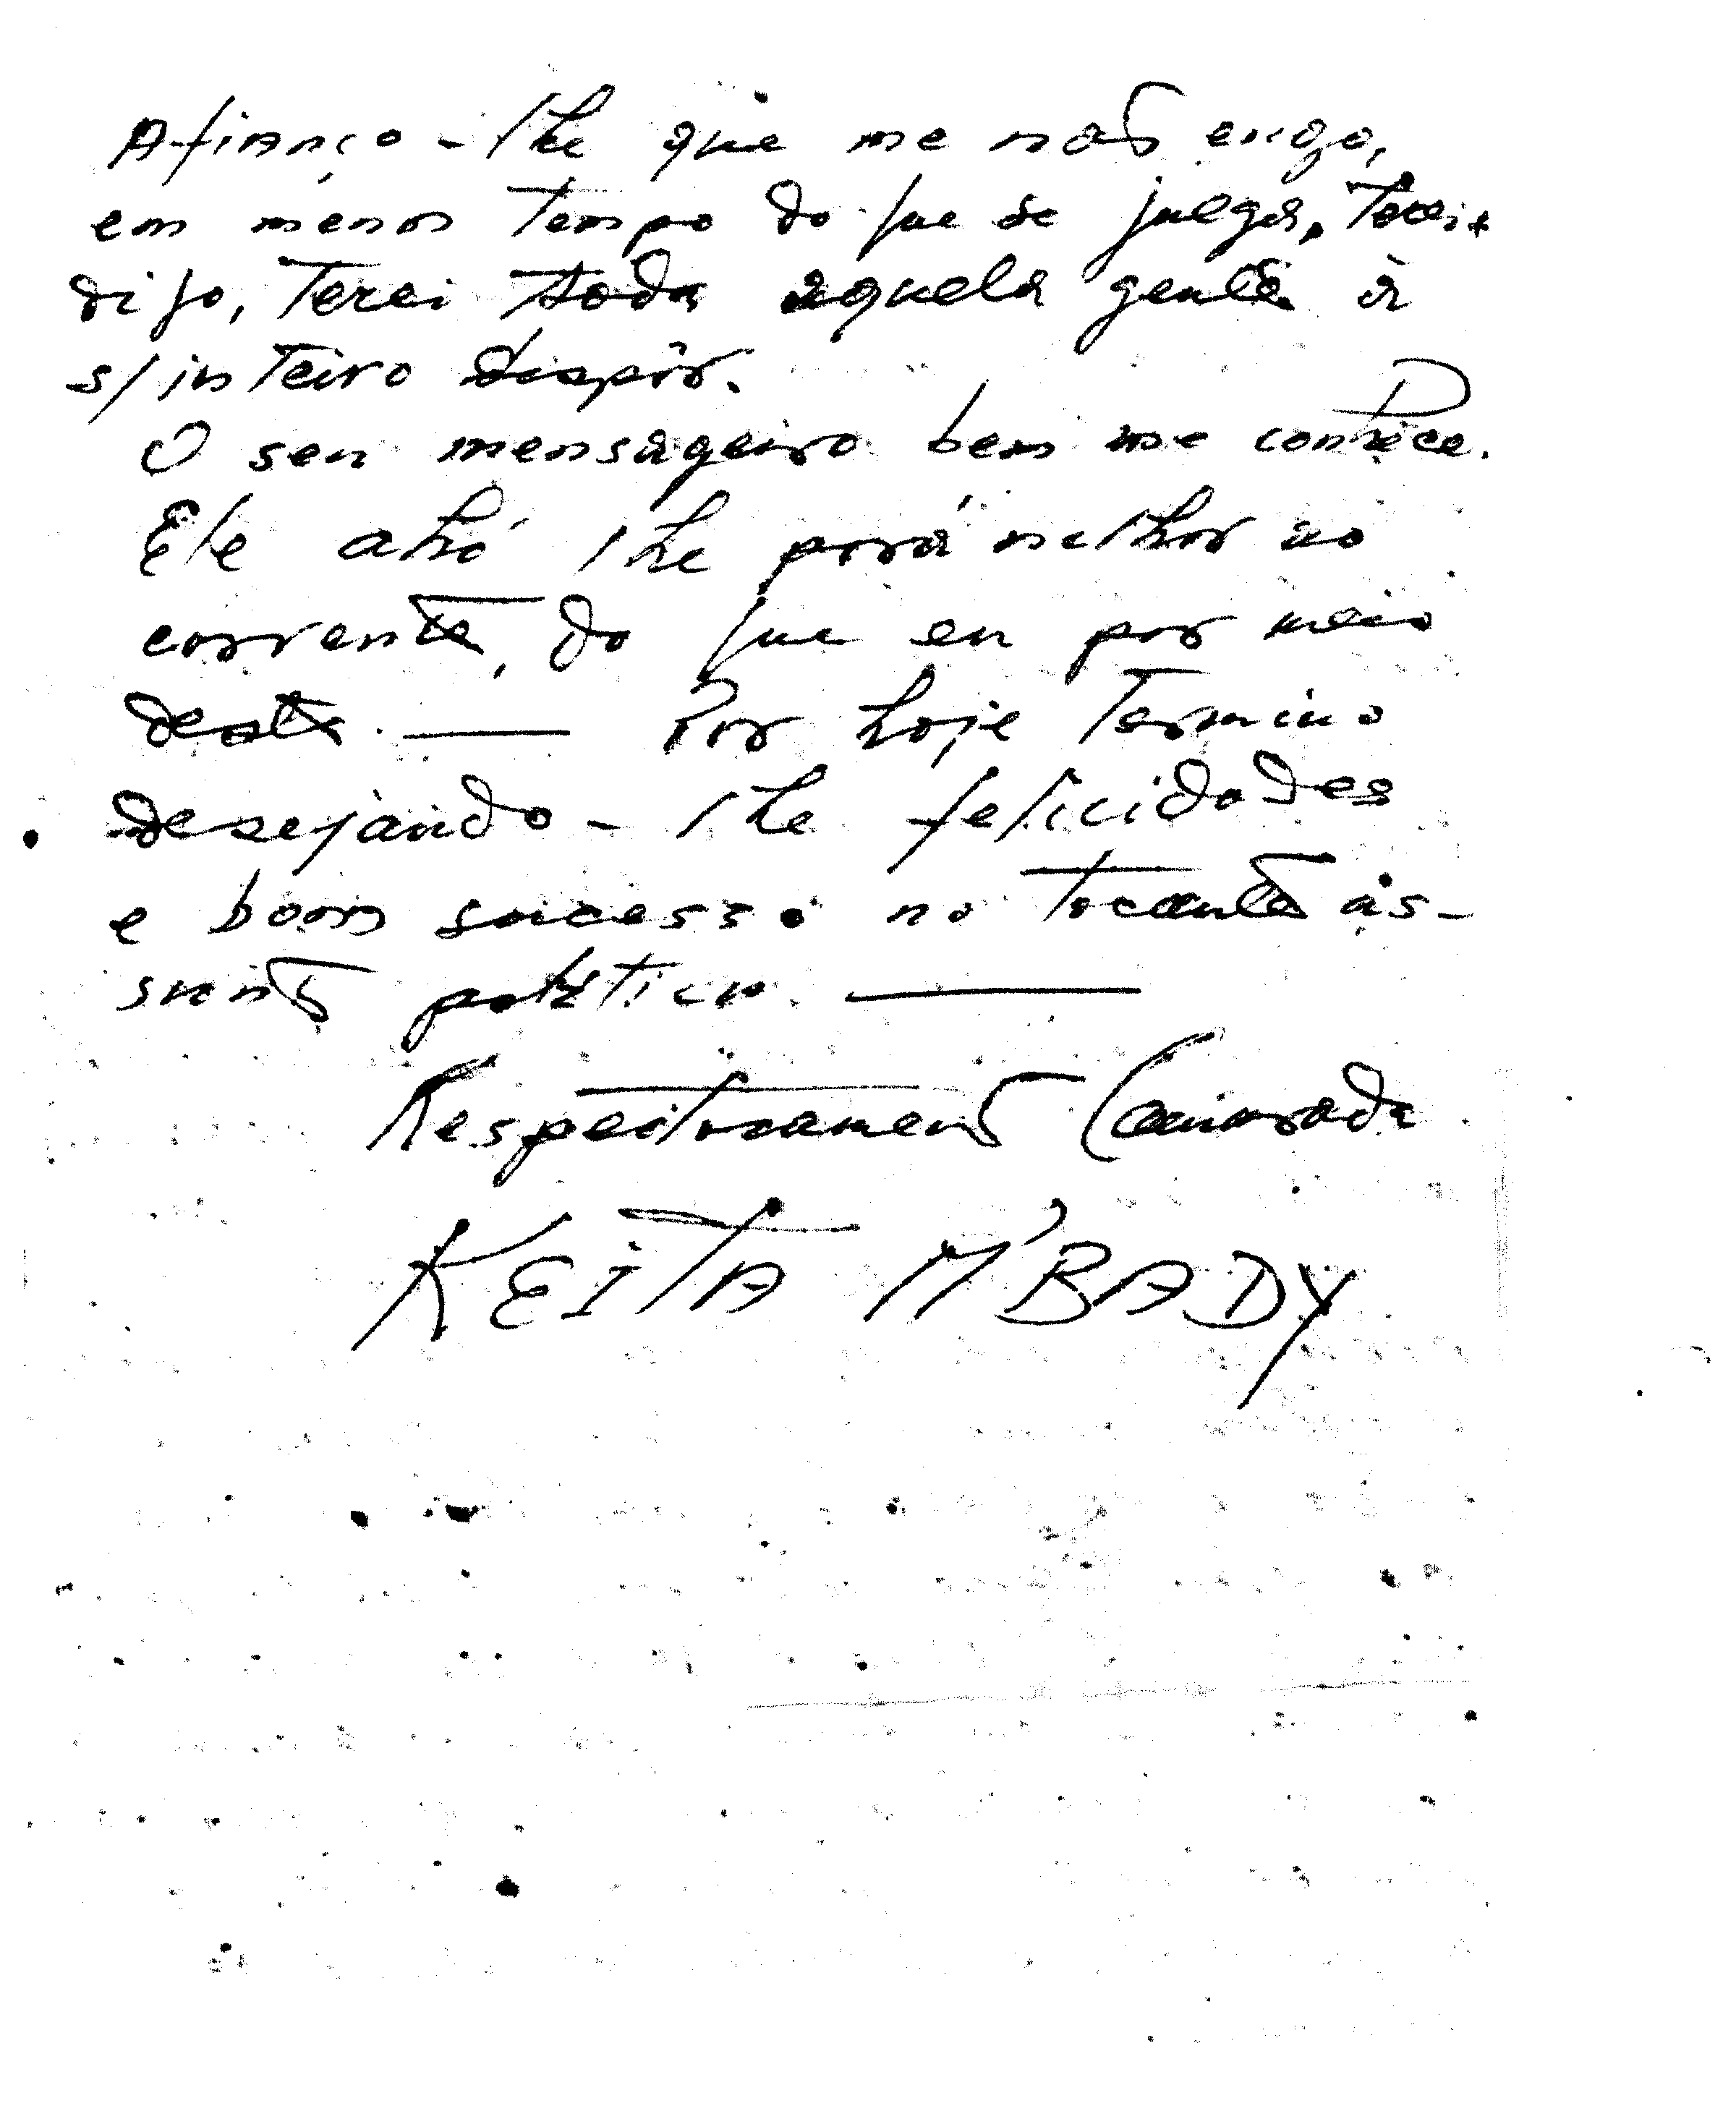 Afianço-lhe que me não engo,
em menos tempo do que se julga, terei
digo, terei toda aquela gente à
s/inteiro dispôr.
O seu mensageiro bem me conhece.
Ele ahi lhe porá melhor ao
corrente, do que eu por meio
desta. — Por hoje termino
desejando-lhe felicidades
e bom sucesso no tocante as-
sunto politico. —
Respeitosamente Camarada
KEITA M'BADY